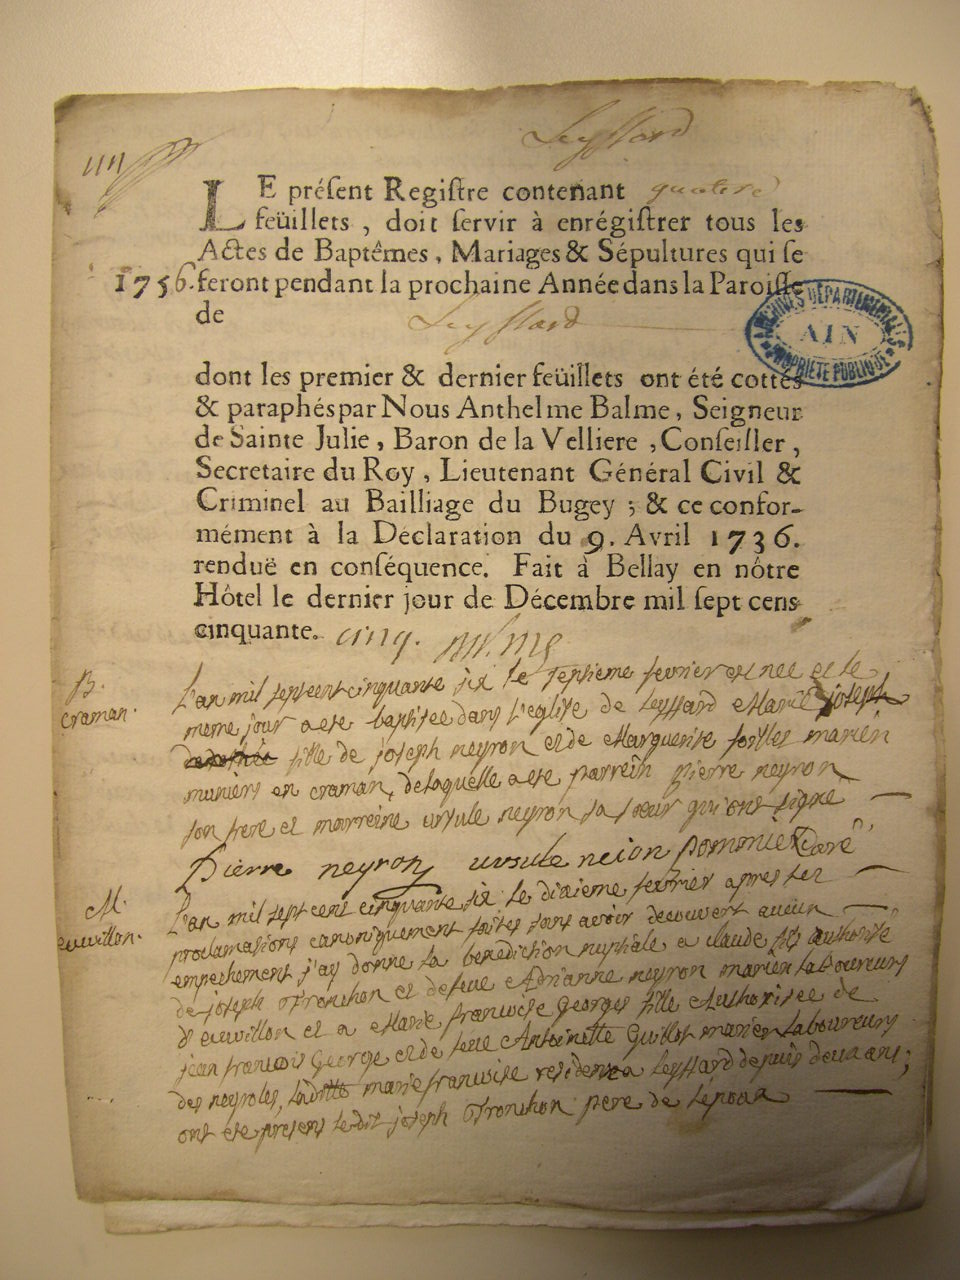 Leyssard
LE préſent Regiſtre contenant quatere
feüillets, doit ſervir à enrégiſtrer tous les
Actes de Baptêmes, Mariages & Sépultures qui ſe
1756. feront pendant la prochaine Année dans la Paroiſſe
de Leyssard
ARCHIVES DÉPARTEMENTALES
AIN
PROPRIÉTÉ PUBLIQUE
dont les premier & dernier feüillets ont été cottés
& paraphés par Nous Anthelme Balme, Seigneur
de Sainte Julie, Baron de la Velliere, Conſeiller,
Secretaire du Roy, Lieutenant Général Civil &
Criminel au Bailliage du Bugey; & ce confor-
mément à la Déclaration du 9. Avril 1736.
renduë en conſéquence. Fait à Bellay en nôtre
Hôtel le dernier jour de Décembre mil ſept cens
cinquante. cinq.
B.
craman.
L'an mil sept cent cinquante six le septieme fevrier est nee et le
meme jour a ete baptisee dans l'eglise de Leyssard Marie joseph
fille de joseph neyron et de Marguerite foilles marien
muniers en craman, de laquelle a ete parrein pierre neyron
son frere et marreine ursule neyron sa sœur qui ont signe
Pierre neyron ursule neion pommier Curé
M.
L'an mil sept cent cinquante six le dixieme fevrier apres les
proclamations canoniquement faites sans avoir decouvert aucun
empechement j'ay donne la benediction nuptiale a claude fils authorise
de joseph Tronchon et de feue Adrianne neyron marien laboureurs
d'euvillon et a Marie francoise Georges fille Authorisee de
jean francois George et de feue Antoinette Guillot marien laboureurs
des neyroles, ladite marie francoise residente a Leyssard depuis deux ans;
ont ete presens ledit joseph Tronchon pere de l'epoux